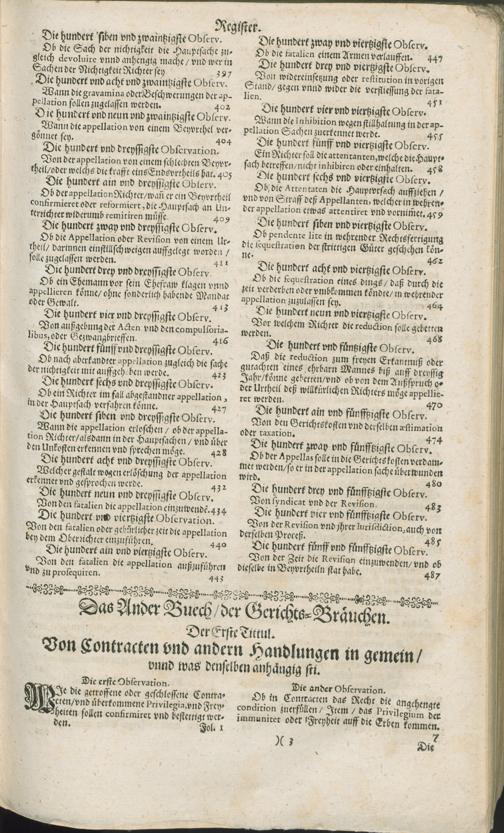 Register.
Die hundert siben vnd zwaintzigste Observ.
Ob die Sach der nichtigkeit die Hauptsache zu-
gleich devoluire vnnd anhengig mache / vnd wer in
Sachen der Nichtigkeit Richter sey 397
Die hundert vnd acht vnd zwaintzigste Observ.
Wann die gravamina oder Beschwerungen der ap-
pellation sollen zugelassen werden. 402
Die hundert vnd neun vnd zwaintzigste Observ.
Wann die appellation von einem Beyvrthel ver-
gönnet sey. 404
Die hundert vnd dreyssigste Observation.
Von der appellation von einem schlechten Beyvr-
theil / oder welchs die krafft eins Endsvrtheils hat. 405
Die hundert ain vnd dreyssigste Observ.
Ob der appellation Richter / wañ er ein Beyvrtheil
confirmieret oder reformiret, die Hauptsach an Un-
terrichter widerumb remitiren müsse. 409
Die hundert zway vnd dreyssigste Observ.
Ob die Appellation oder Revision von einem Ur-
theil / darinnen einstillschweigen aufferlegt worden /
solle zugelassen werden. 411
Die hundert drey vnd dreyssigste Observ.
Ob ein Ehemann vor sein Ehefraw klagen vnnd
appellieren könne / ohne sonderlich habende Mandat
oder Gewalt. 413
Die hundert vier vnd dreyssigste Observ.
Von außgebung der Acten vnd den compulsoria-
libus, oder Gezwangbrieffen. 416
Die hundert fünff vnd dreyssigste Observ.
Ob nach aberkandter appellation zugleich die sache
der nichtigkeit mit auffgehoben werde. 423
Die hundert sechs vnd dreyssigste Observ.
Ob ein Richter im fall abgestandner appellation,
in der Hauptsach verfahren könne. 427
Die hundert siben vnd dreyssigste Observ.
Wann die appellation erloschen / ob der appella-
tion Richter / alsdann in der Hauptsachen / vnd über
den Unkosten erkennen vnd sprechen möge. 428
Die hundert acht vnd dreyssigste Observ.
Welcher gestalt wegen erlöschung der appellation
erkennet vnd gesprochen werde. 432
Die hundert neun vnd dreyssigste Observ.
Von den fatalien die appellation einzuwendē. 434
Die hundert vnd viertzigste Observation.
Von den fatalien oder gebürlicher zeit die appellation
bey dem Oberichter einzuführen. 440
Die hundert ain vnd viertzigste Observ.
Von den fatalien die appellation außzuführen
vnd zu prosequiren. 443
Die hundert zway vnd viertzigste Observ.
Ob die fatalien einem Armen verlauffen. 447
Die hundert drey vnd viertzigste Observ.
Von widereinsetzung oder restitution in vorigen
Stand / gegen vnnd wider die verfliessung der fata-
lien. 451
Die hundert vier vnd viertzigste Observ.
Wann die Inhibition wegen stillhaltung in der ap-
pellation Sachen zuerkennet werde. 455
Die hundert fünff vnd viertzigste Observ.
Ein Richter soll die attentanten, welche die Haupt-
sach betreffen / nicht inhibiren oder einhalten. 458
Die hundert sechs vnd viertzigste Observ.
Ob, die Attentaten die Hauptvrsach auffziehen /
vnd von Straff deß Appellanten, welcher in wehren-
der appellation etwas attentiret vnd vornimet. 459
Die hundert siben vnd viertzigste Observ.
Ob pendente lite in wehrender Rechtfertigung
die sequestration der strittigen Güter geschehen kön-
ne. 462
Die hundert acht vnd viertzigste Observ.
Ob die sequestration eines dings / daß durch die
zeit verderben oder vmbkommen köndte / in wehrender
appellation zuzulassen sey. 464
Die hundert neun vnd viertzigste Observ.
Vor welchem Richter die reduction solle gebetten
werden. 468
Die hundert vnd fünftzigste Observ.
Daß die reduction zum freyen Erkantnuß oder
gutachten eines ehrbarn Mannes biß auff dreyssig
Jahr / könne gebetten / vnd ob von dem Außspruch o-
der Urtheil deß willkürlichen Richters möge appellie-
ret werden. 470
Die hundert ain vnd fünfftzigste Observ.
Von den Gerichtskosten vnd derselben æstimation
oder taxation. 474
Die hundert zway vnd fünfftzigste Observ.
Ob der Appellas solle in die Gerichtskosten verdam-
met werden / so er in der appellation sache überwunden
wird. 480
Die hundert drey vnd fünfftzigste Observ.
Von syndicat vnd der Revision. 483
Die hundert vier vnd fünfftzigste Observ.
Von der Revision vnd jhrer Iurisdiction, auch von
derselben Proceß. 485
Die hundert fünff vnd fünfftzigste Observ.
Von der Zeit die Revision einzuwenden / vnd ob
dieselbe in Beyvrtheiln stat habe. 487
Das Ander Buech / der Gerichts-Bräuchen.
Der Erste Tittul.
Von Contracten vnd andern Handlungen in gemein /
vnnd was denselben anhängig sei.
Die erste Observation.
Wie die getroffene oder geschlossene Contra-
cten / vnd überkommene Privilegia, vnd Frey-
heiten sollen confirmiret vnd bestettiget wer-
den. Fol. 1
Die ander Observation.
Ob in Contracten das Recht die angehengte
condition zuerfüllen / Item / das Privilegium der
immunitet oder Freyheit auff die Erben kommen.
7
)( 3
Die